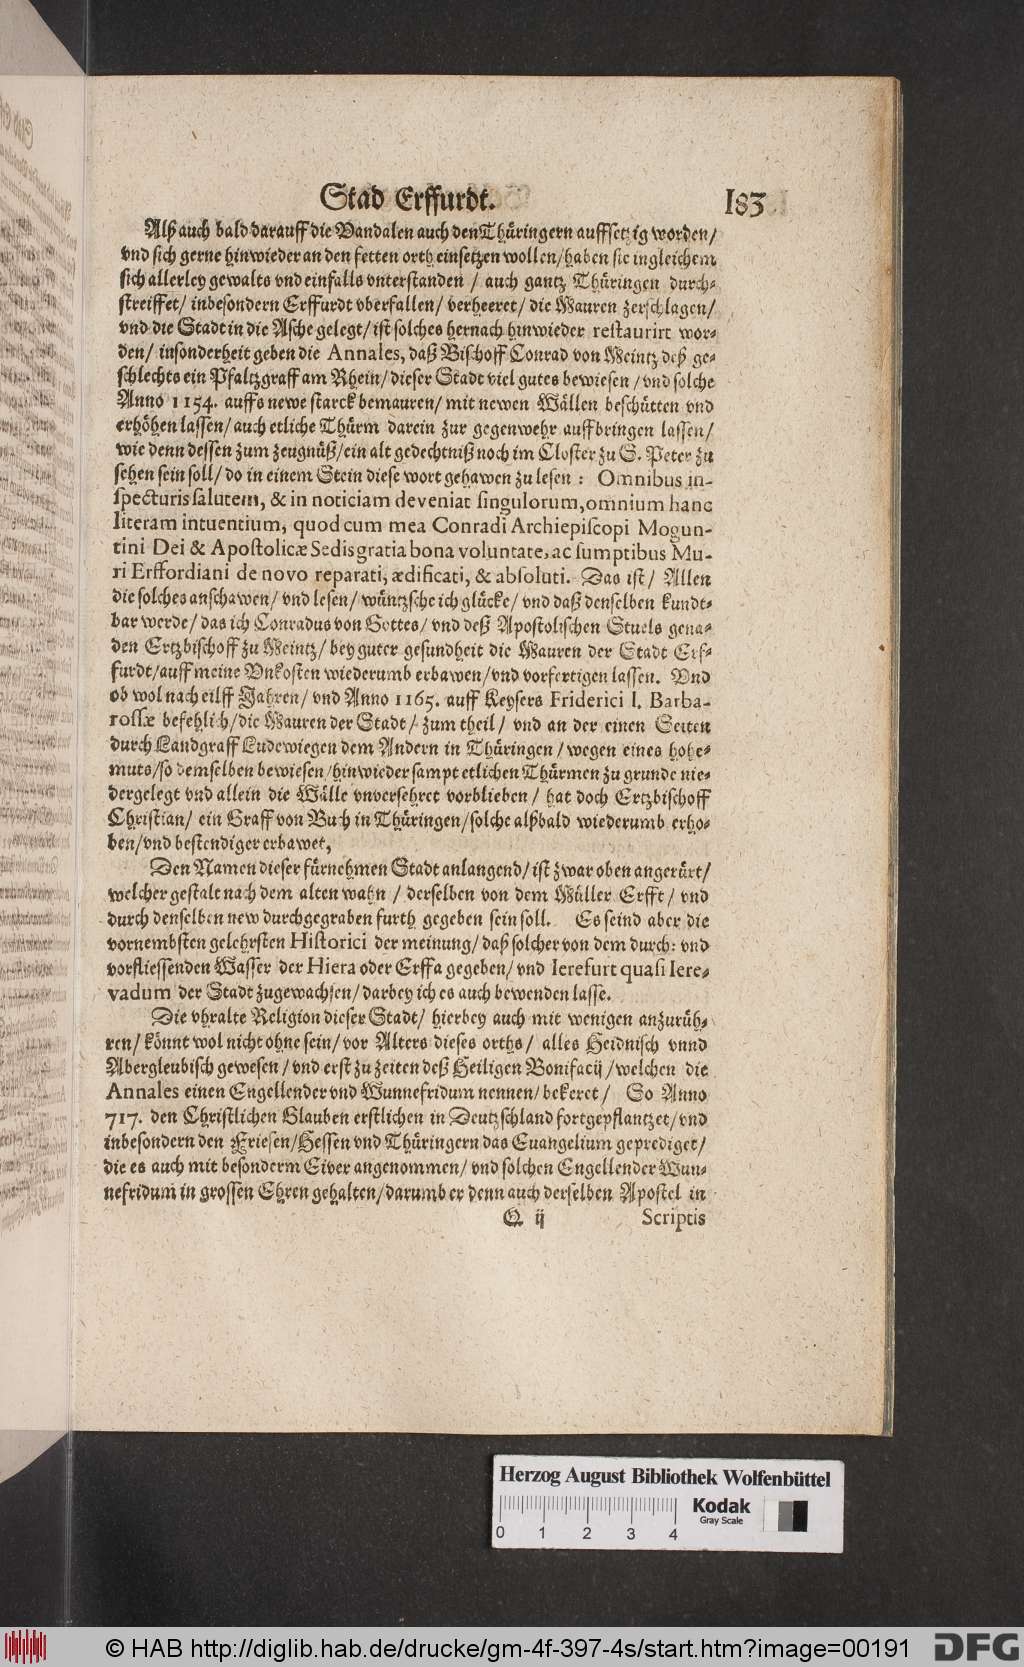 Stad Erffurdt. 183
Alß auch bald darauff die Vandalen auch den Thüringern auffsetzig worden/
vnd sich gerne hinwieder an den fetten orth einsetzen wollen/haben sie ingleichem
sich allerley gewalts vnd einfalls vnterstanden / auch gantz Thüringen durch-
streiffet/ inbesondern Erffurdt vberfallen/ verheeret/ die Mauren zerschlagen/
vnd die Stadt in die Asche gelegt/ ist solches hernach hinwieder restaurirt wor-
den/ insonderheit geben die Annales, daß Bischoff Conrad von Meintz deß ge-
schlechts ein Pfaltzgraff am Rhein/ dieser Stadt viel gutes bewiesen / vnd solche
Anno 1154. auffs newe starck bemauren/ mit newen Wällen beschütten vnd
erhöhen lassen/ auch etliche Thürm darein zur gegenwehr auffbringen lassen/
wie denn dessen zum zeugnüß/ein alt gedechtniß noch im Closter zu S. Peter zu
sehen sein soll/ do in einem Stein diese wort gehawen zu lesen: Omnibus in-
specturis salutem, & in noticiam deveniat singulorum, omnium hanc
literam intuentium, quod cum mea Conradi Archiepiscopi Mogun-
tini Dei & Apostolicæ Sedis gratia bona voluntate, ac sumptibus Mu-
ri Erffordiani de novo reparati, ædificati, & absoluti. Das ist/ Allen
die solches anschawen/ vnd lesen/ wüntzsche ich glücke/ vnd daß denselben kundt-
bar werde/ das ich Conradus von Gottes/ vnd deß Apostolischen Stuels gena-
den Ertzbischoff zu Meintz/ bey guter gesundheit die Mauren der Stadt Erf-
furdt/auff meine Vnkosten wiederumb erbawen/vnd vorfertigen lassen. Vnd
ob wol nach eilff Jahren/ vnd Anno 1165. auff Keysers Friderici I. Barba-
rossæ befehlich/die Mauren der Stadt/ zum theil/ vnd an der einen Seiten
durch Landgraff Ludewiegen dem Andern in Thüringen/ wegen eines hohe-
muts/so demselben bewiesen/hinwieder sampt etlichen Thürmen zu grunde nie-
dergelegt vnd allein die Wälle vnversehret vorblieben/ hat doch Ertzbischoff
Christian/ ein Graff von Buch in Thüringen/ solche alßbald wiederumb erho-
ben/vnd bestendiger erbawet,
Den Namen dieser fürnehmen Stadt anlangend/ ist zwar oben angerürt/
welcher gestalt nach dem alten wahn / derselben von dem Müller Erfft/ vnd
durch denselben new durchgegraben furth gegeben sein soll. Es seind aber die
vornembsten gelehrsten Historici der meinung/ daß solcher von dem durch: vnd
vorfliessenden Wasser der Hiera oder Erffa gegeben/ vnd Ierefurt quasi Iere-
vadum der Stadt zugewachsen/ darbey ich es auch bewenden lasse.
Die vhralte Religion dieser Stadt/ hierbey auch mit wenigen anzurüh-
ren/ könnt wol nicht ohne sein/ vor Alters dieses orths/ alles Heidnisch vnnd
Abergleubisch gewesen/ vnd erst zu zeiten deß Heiligen Bonifacij/welchen die
Annales einen Engellender vnd Wunnefridum nennen/ bekeret/ So Anno
717. den Christlichen Glauben erstlichen in Deutzschland fortgepflantzet/ vnd
inbesondern den Friesen/Hessen vnd Thüringern das Euangelium geprediget/
die es auch mit besonderm Eiver angenommen/ vnd solchen Engellender Wun-
nefridum in grossen Ehren gehalten/ darumb er denn auch derselben Apostel in
Q ij Scriptis
Herzog August Bibliothek Wolfenbüttel
Kodak
Gray Scale
0 1 2 3 4
© HAB http://diglib.hab.de/drucke/gm-4f-397-4s/start.htm?image=00191
DFG